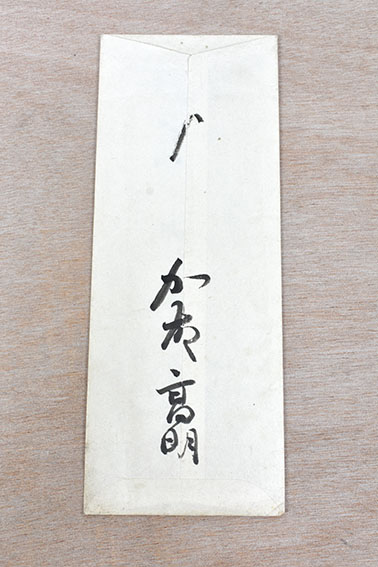 加藤高明